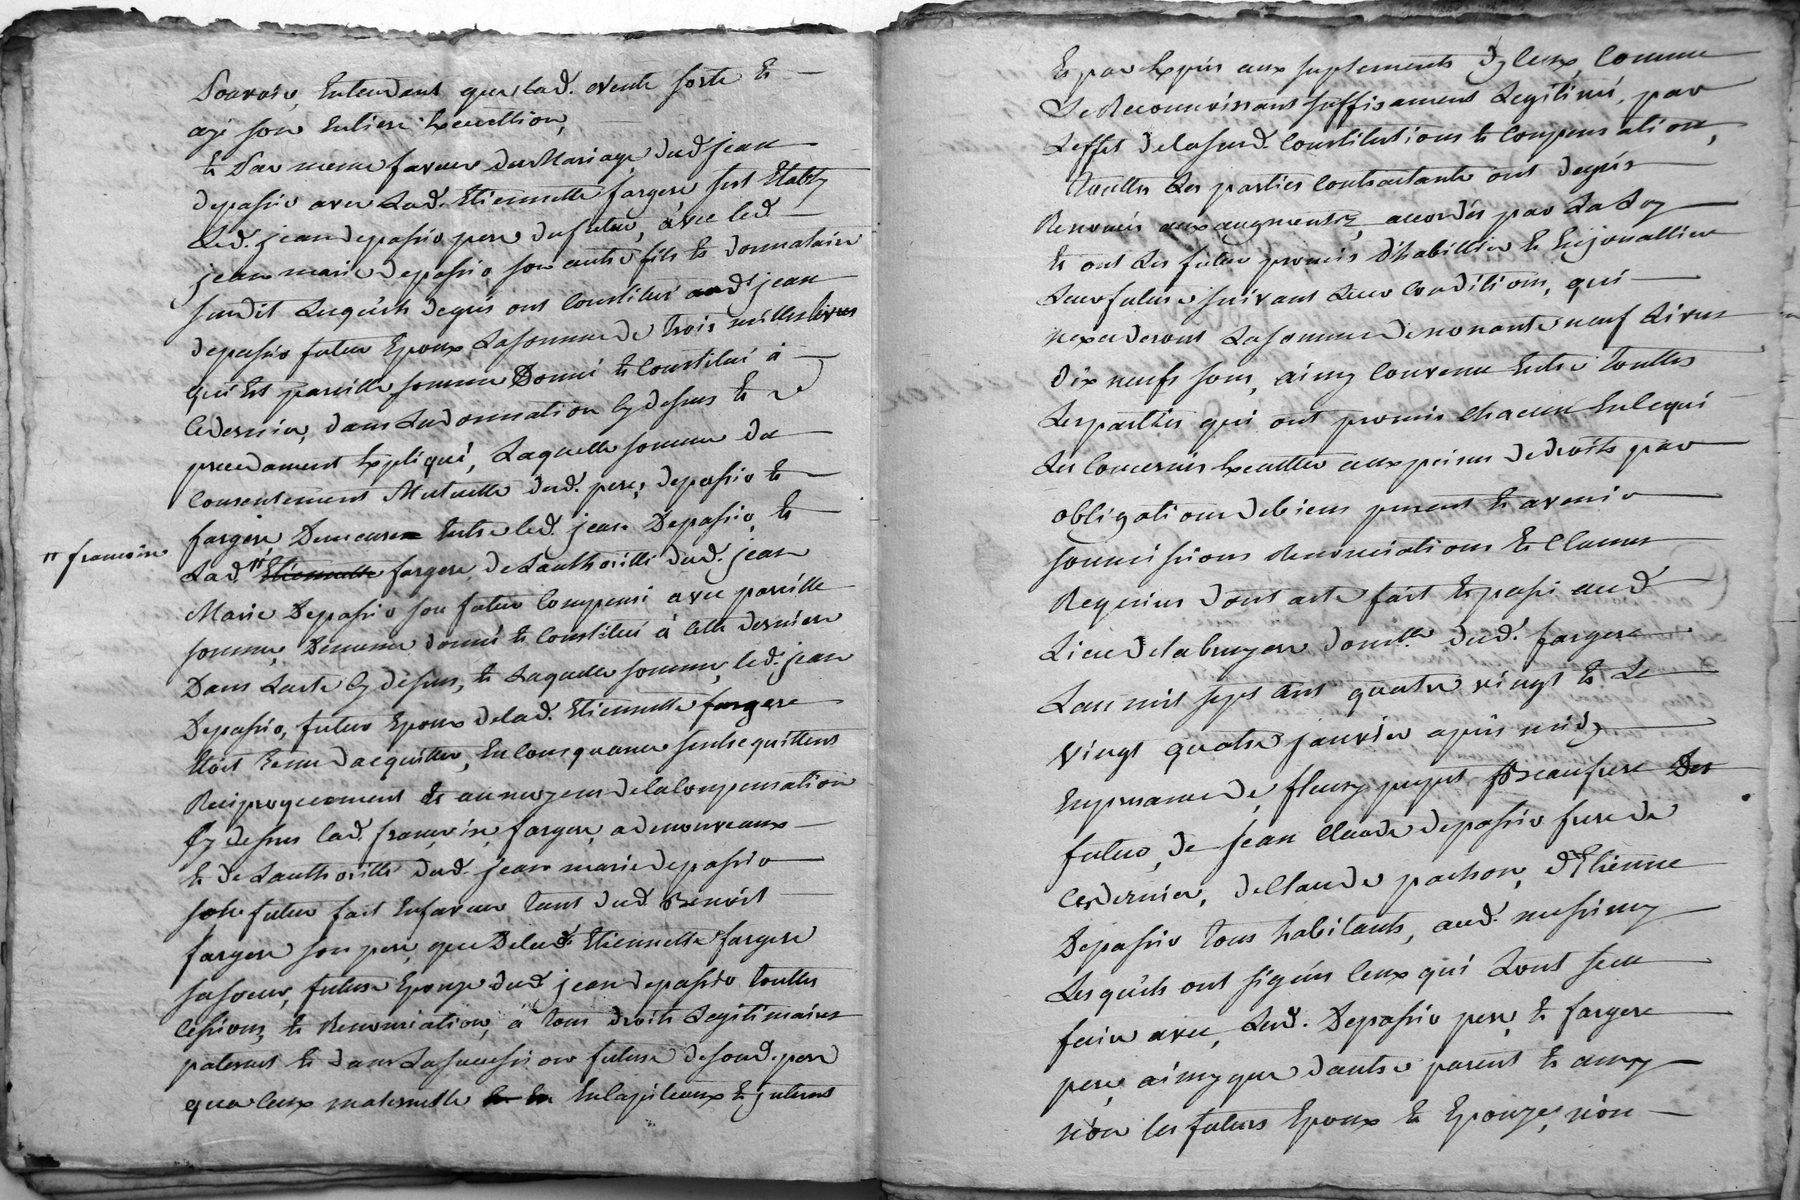 Pouvoir, Entendant que lad. vente sorte Et
aye son Entiere Execution,
Et Par meme faveur du Mariage dud. jean
depassio avec Lad. Etiennette fargere sest Etably
Led. jean depassio pere du futur, avec led.
jean marie depassio son autre fils Et donnataire
susdit Lesquels degrés ont Constitué aud. jean
depassio futur Epoux, La somme de trois milles livres
qui Est pareille somme Donné Et Constitué à
ce dernier, dans La donnation Cy dessus Et
precedament Expliqué, Laquelle somme du
Consentement Mutuelle desd. peres depassio Et
fargere Demeure Entre led. jean Depassio, Et
" francoise
Lad. " Etiennette fargere, de Lauthorité dud. jean
Marie Depassio son futur Compensé avec pareille
somme, Dememe donné Et Constitué à Cette derniere
Dans Lacte Cy dessus, Et Laquelle somme, led. jean
Depassio, futur Epoux de lad. Etiennette fargere
Etoit tenu dacquitter, En Consequance sentrequittent
Reciproquement Et au moyens de la Compensation
Cy dessus lad. francoise fargere, a de nouveaux
Et de Lauthorité dud. jean marie depassio
son futur fait En faveur tant dud. Benoist
fargere son pere, que De lad. Etiennette fargere
sa soeur, future Epouze dud. jean depassio touttes
Cessions, Et Renonciation, a tous droits Legitimaires
paternels Et dans La succession future de sond. pere
que Ceux maternelle En Capiteaux Et juterest
Et par Exprés aux suplements Dyceux, Comme
Se Reconnoissant suffisament Legitimé, par
Leffet de la susd. Constitutions Et Compensation,
touttes Les parties Contractante ont degrés
Renoncés aux augments, accordés par La Loy
Et ont Les futur promis dhabillier Et Enjouallier
Leur future suivant Leur Conditions, qui
nexcederont La somme de nonante neuf Livres
dix neufs sous, ainsy Convenu Entre touttes
Les parties qui ont promis Chacun En Ce qui
Les Concernes Executter aux peines de droits par
obligations de biens present Et avenir
soumissions Renonciations Et Clauses
Requises dont acte fait Et passé aud.
Lieu de la bruyere domille dud. fargere
Lan mil sept Cent quatre vingt Et Le
vingt quatre janvier aprés midy
En presance de fleury puput Beaufrere Des
futur, de jean Claude depassio frere de
Ces dernier, de Claude pachon, dEtienne
Depassio tous habitants, aud. messimy
Lesquels ont signés Ceux qui Lont sceu
faire avec, Lesd. Depassio pere, Et fargere
pere, ainsy que dautre parent Et amy
non les futurs Epoux Et Epouzes, non